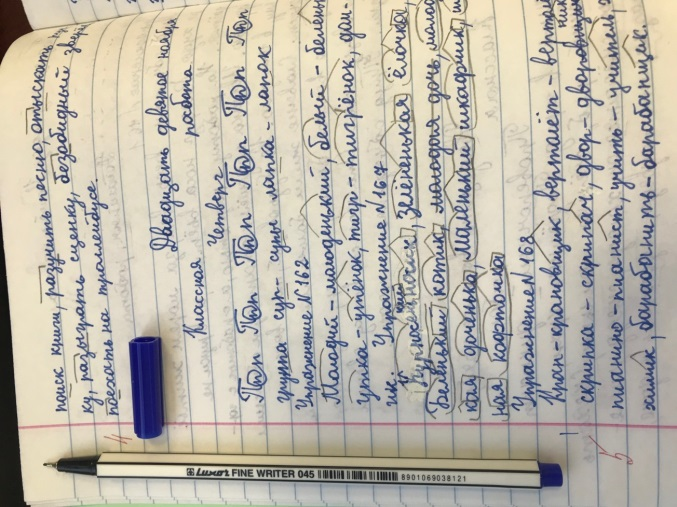 поиск книги, разучить песню, отыскать
ку, разыграть сценку, безобидный
поехать на троллейбусе.
Двадцать девятое ноября
Классная работа
Четверг
Пп Пп Пп Пп Пп Пп
группа суп-супы лапка-лапок
Упражнение №162
Молодой-молоденький, белый-беленький
утка-утёнок, тигр-тигрёнок,
ик. Упражнение №167
носик, зелёненькая ёлочка,
Беленький котик молодая дочь,
кая доченька маленький шкафчик,
ная карточка
Упражнение №168
Кран-крановщик, вертолёт-
скрипка-скрипач, двор-дворник
пианино-пианист, учить-учитель,
химик, барабанить-барабанщик.
4
5
Luxor FINE WRITER 045
8901069038121